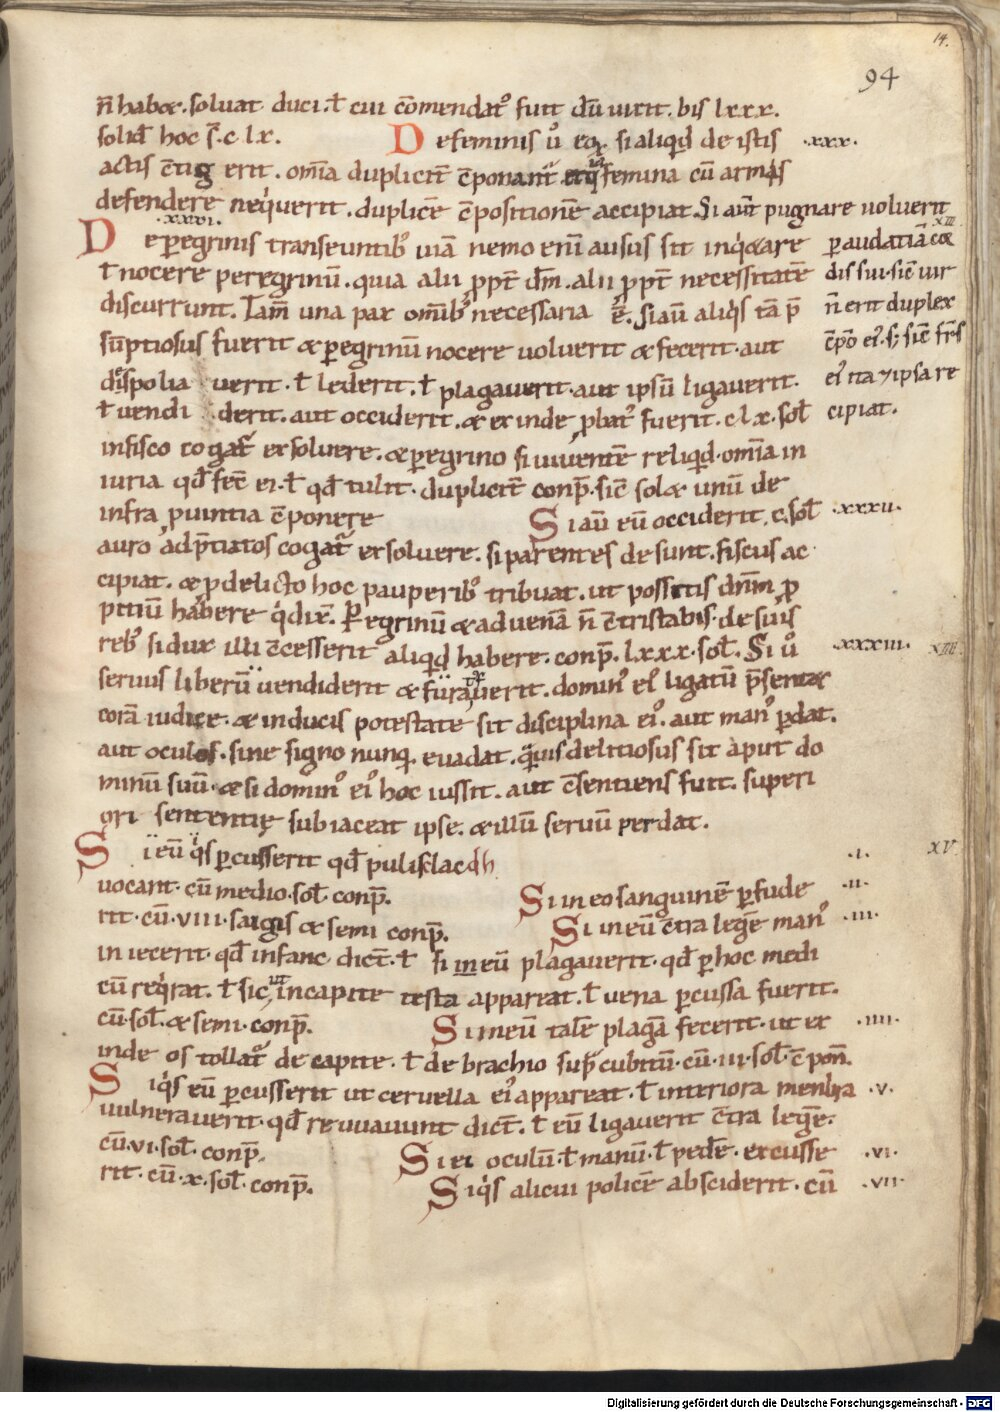 14.
94
n̄ habet. soluat duci. ł cui c̄omendat᷒ fuit dū uixit. bis lxxx.
solid̄ hoc s̄. c lx. De feminis ū eoꝝ si aliqđ de istis .xxx.
actis c̄tigerit. om̄ia duplicit̄ c̄ponant᷑ femina cū armis
defendere neq̇uerit. duplicē c̄positionē accipiat. Si aut̄ pugnare uoluerit
.xxxi. XIII
De ꝑegrinis transeuntib᷒ uiā nemo enī ausus sit inq̇etare
ꝑ audatiā coꝛ
ł nocere peregrinū. quia alii ꝓpt̄ dm̄. alii ꝓpt̄ necessitatē
dis sui. sic̄ uir
discurrunt. Tam̄ una pax om̄ib᷒ necessaria ē. Si aū aliq̇s tā p̄
n̄ erit duplex
sūptiosus fuerit et ꝑegrinū nocere uoluerit et fecerit. aut
c̄po ei᷒. s; sic̄ fr̄s
despolia uerit. ł lederit. ł plagauerit. aut ipsū ligauerit.
ei᷒ ita ⁊ ipsa re
ł uendi derit. aut occiderit. et exinde ꝓbat᷒ fuerit. c. lx. sol̄
cipiat.
in fisco cogat᷑ exsoluere. et ꝑegrino si uiuentē reliqđ. om̄ia in
iuria qđ fec̄ ei. ł qđ tulit. duplicit̄ conp̄. sic̄ solet unū de
infra ꝓuintia c̄ponere Si aū eū occiderit. c. sol̄ .xxxii.
auro adp̄tiatos cogat᷑ exsoluere. si parentes desunt. fiscus ac
cipiat. et ꝓ delicto hoc pauperib᷒ tribuat. ut possitis dn̄m ꝓ
pitiū habere q̇ dix̄. Peregrinū et aduenā n̄ c̄tristabis. de suis
reb᷒ si dux illi c̄cesserit aliqđ habere. conp̄. lxxx. sol̄. Si ū .xxxiii. XIIII
seruus liberū uendiderit et furauerit. domin᷒ ei᷒ ligatū p̄sentet
corā iudice. et in ducis potestate sit disciplina ei᷒. aut man᷒ ꝑdat.
aut oculos. sine signo nunq̄. euadat. q̄uis delitiosus sit aput do
minū suū. et si domin᷒ ei᷒ hoc iussit. aut c̄sentiens fuit. superi
ori sententię subiaceat ipse. et illū seruū perdat.
Si eū q̇s ꝑcusserit qđ pulislac dh .i. XV
uocant. cū medio. sol̄. conp̄. Si in eo sanguinē ꝑfude .ii.
rit. cū. viii. saigis et semi conp̄. Si in eū c̄tra legē man᷒ .iii.
in iecerit. qđ infanc dict̄. ł si in eū plagauerit. qđ ꝑ hoc medi
cū req̇rat. ł sic, ut in capite testa appareat. ł uena ꝑcussa fuerit.
cū. sol̄. et semi. conp̄. Si in eū talē plagā fecerit. ut ex .iiii.
inde os tollat᷑ de capite. ł de brachio sup̄ cubitū. cū. iii. sol̄. c̄pon̄.
Si q̇s eū ꝑcusserit ut ceruella ei᷒ appareat. ł interiora menbra .v.
uulnerauerit. qđ re uuauunt dict̄. ł eū ligauerit c̄tra legē.
cū. vi. sol̄. conp̄. Si ei oculū. ł manū. ł pedē. excusse .vi.
rit. cū. x. sol̄. conp̄. Si q̇s alicui policē absciderit. cū .vii.
Digitalisierung gefördert durch die Deutsche Forschungsgemeinschaft - DFG